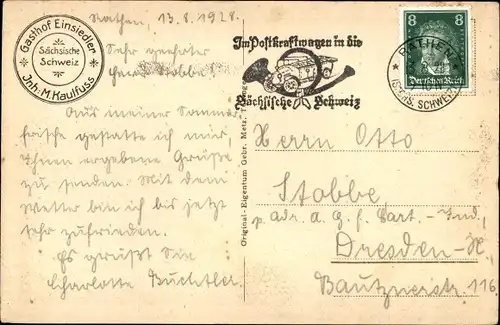 Gasthof Einsiedler
Sächsische
Schweiz
Inh. M. Kaulfuss
Rathen, 13.8.1928.
Sehr geehrter
Herr Stobbe!
Aus meiner Sommer-
frische gestatte ich mir,
Ihnen ergebene Grüße
zu senden. Mit dem
Wetter bin ich bis jetzt
sehr zufrieden.
Es grüßt Sie
Charlotte
Original-Eigentum Gebr. Metz,
Im Postkraftwagen in die
Sächsische Schweiz
8 8
Deutsches Reich
RATHEN
(SÄCHS. SCHWEIZ)
Herrn Otto
Stobbe
p. adr. a. g. f. Cart.-Ind.
Dresden-N.
Bautznerstr. 116